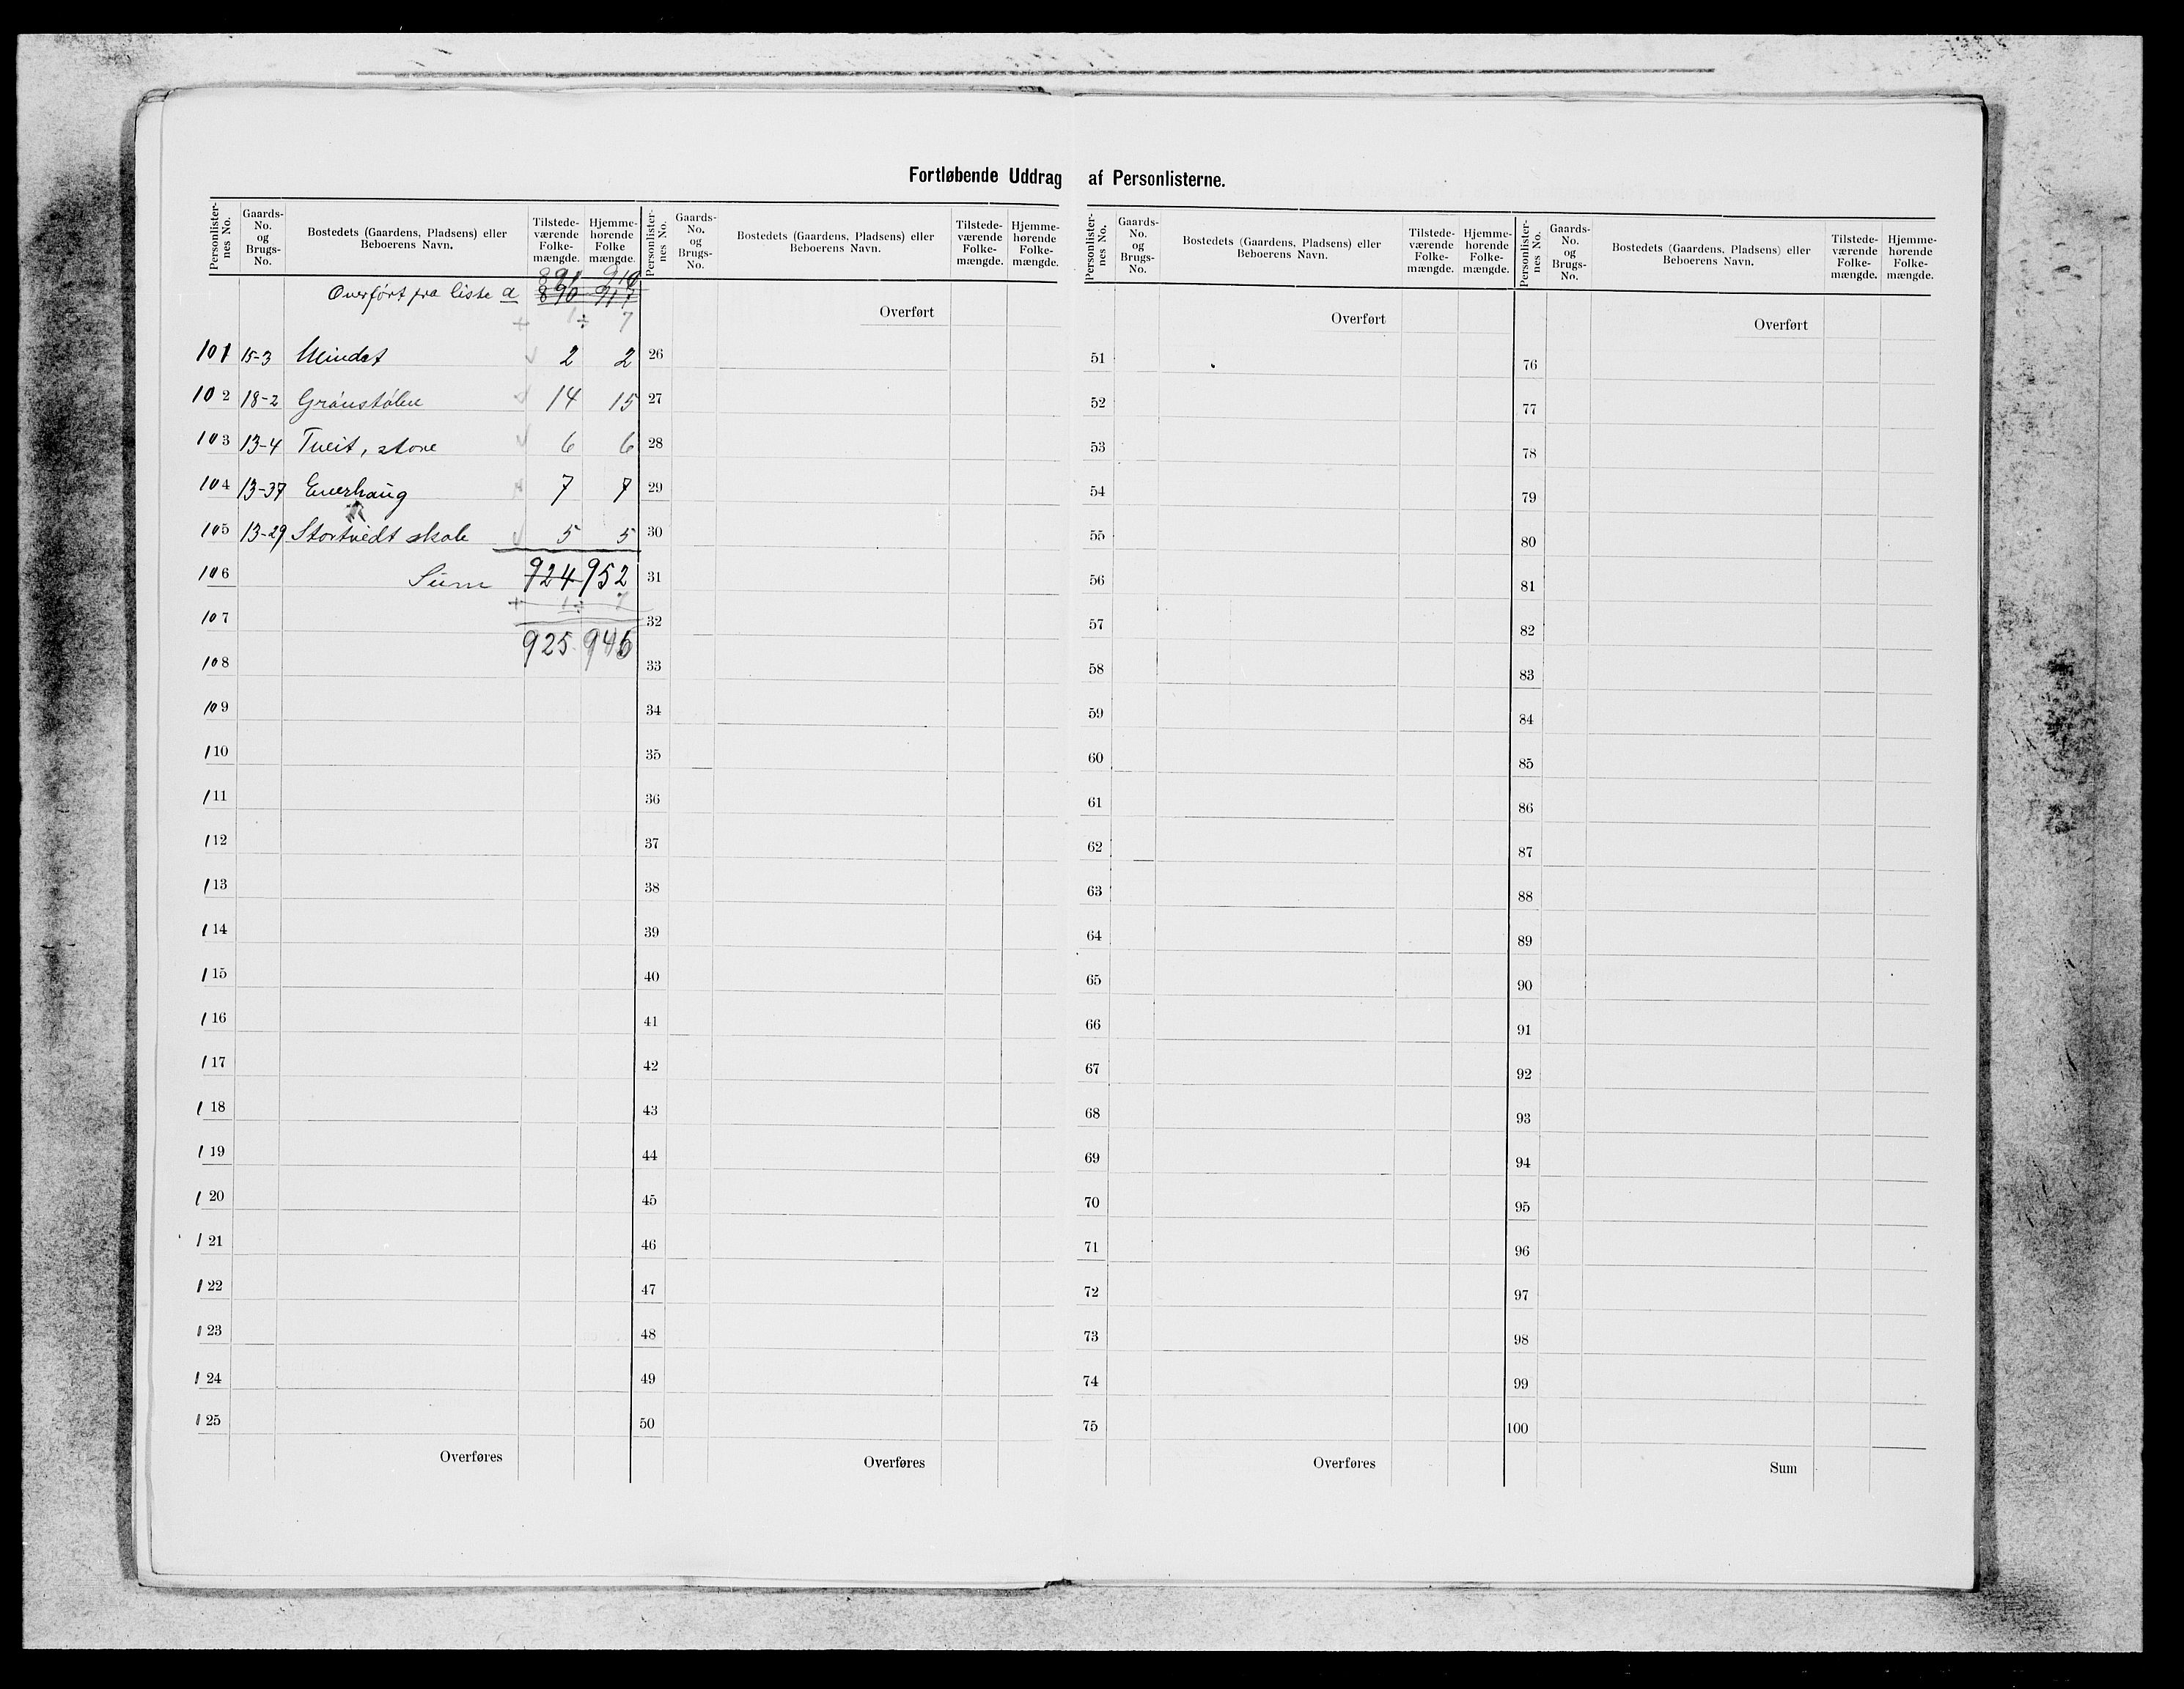 Fortløbende Uddrag af Personlisterne.
Personlister-nes No. Gaards-No. og Brugs-No. Bostedets (Gaardens, Pladsens) eller Beboerens Navn. Tilstede-værende Folke-mængde. Hjemme-hørende Folke mængde.
891 910
Overført fra liste a 890 917
+ 1 ÷ 7
101 15-3 Mindet 2 2
102 18-2 Grånstølen 14 15
103 13-4 Tveit, store 6 6
104 13-37 Enerhaug 7 7
105 13-29 Stortvedt skole 5 5
106 Sum 924 952
+ 1 ÷ 7
107
925 946
108
109
110
111
112
113
114
115
116
117
118
119
120
121
122
123
124
125
Overføres
Personlister-nes No. Gaards-No. og Brugs-No. Bostedets (Gaardens, Pladsens) eller Beboerens Navn. Tilstede-værende Folke-mængde. Hjemme-hørende Folke-mængde.
Overført
26
27
28
29
30
31
32
33
34
35
36
37
38
39
40
41
42
43
44
45
46
47
48
49
50
Overføres
Personlister-nes No. Gaards-No. og Brugs-No. Bostedets (Gaardens, Pladsens) eller Beboerens Navn. Tilstede-værende Folke-mængde. Hjemme-hørende Folke-mængde.
Overført
51
52
53
54
55
56
57
58
59
60
61
62
63
64
65
66
67
68
69
70
71
72
73
74
75
Overføres
Personlister-nes No. Gaards-No. og Brugs-No. Bostedets (Gaardens, Pladsens) eller Beboerens Navn. Tilstede-værende Folke-mængde. Hjemme-hørende Folke-mængde.
Overført
76
77
78
79
80
81
82
83
84
85
86
87
88
89
90
91
92
93
94
95
96
97
98
99
100
Sum